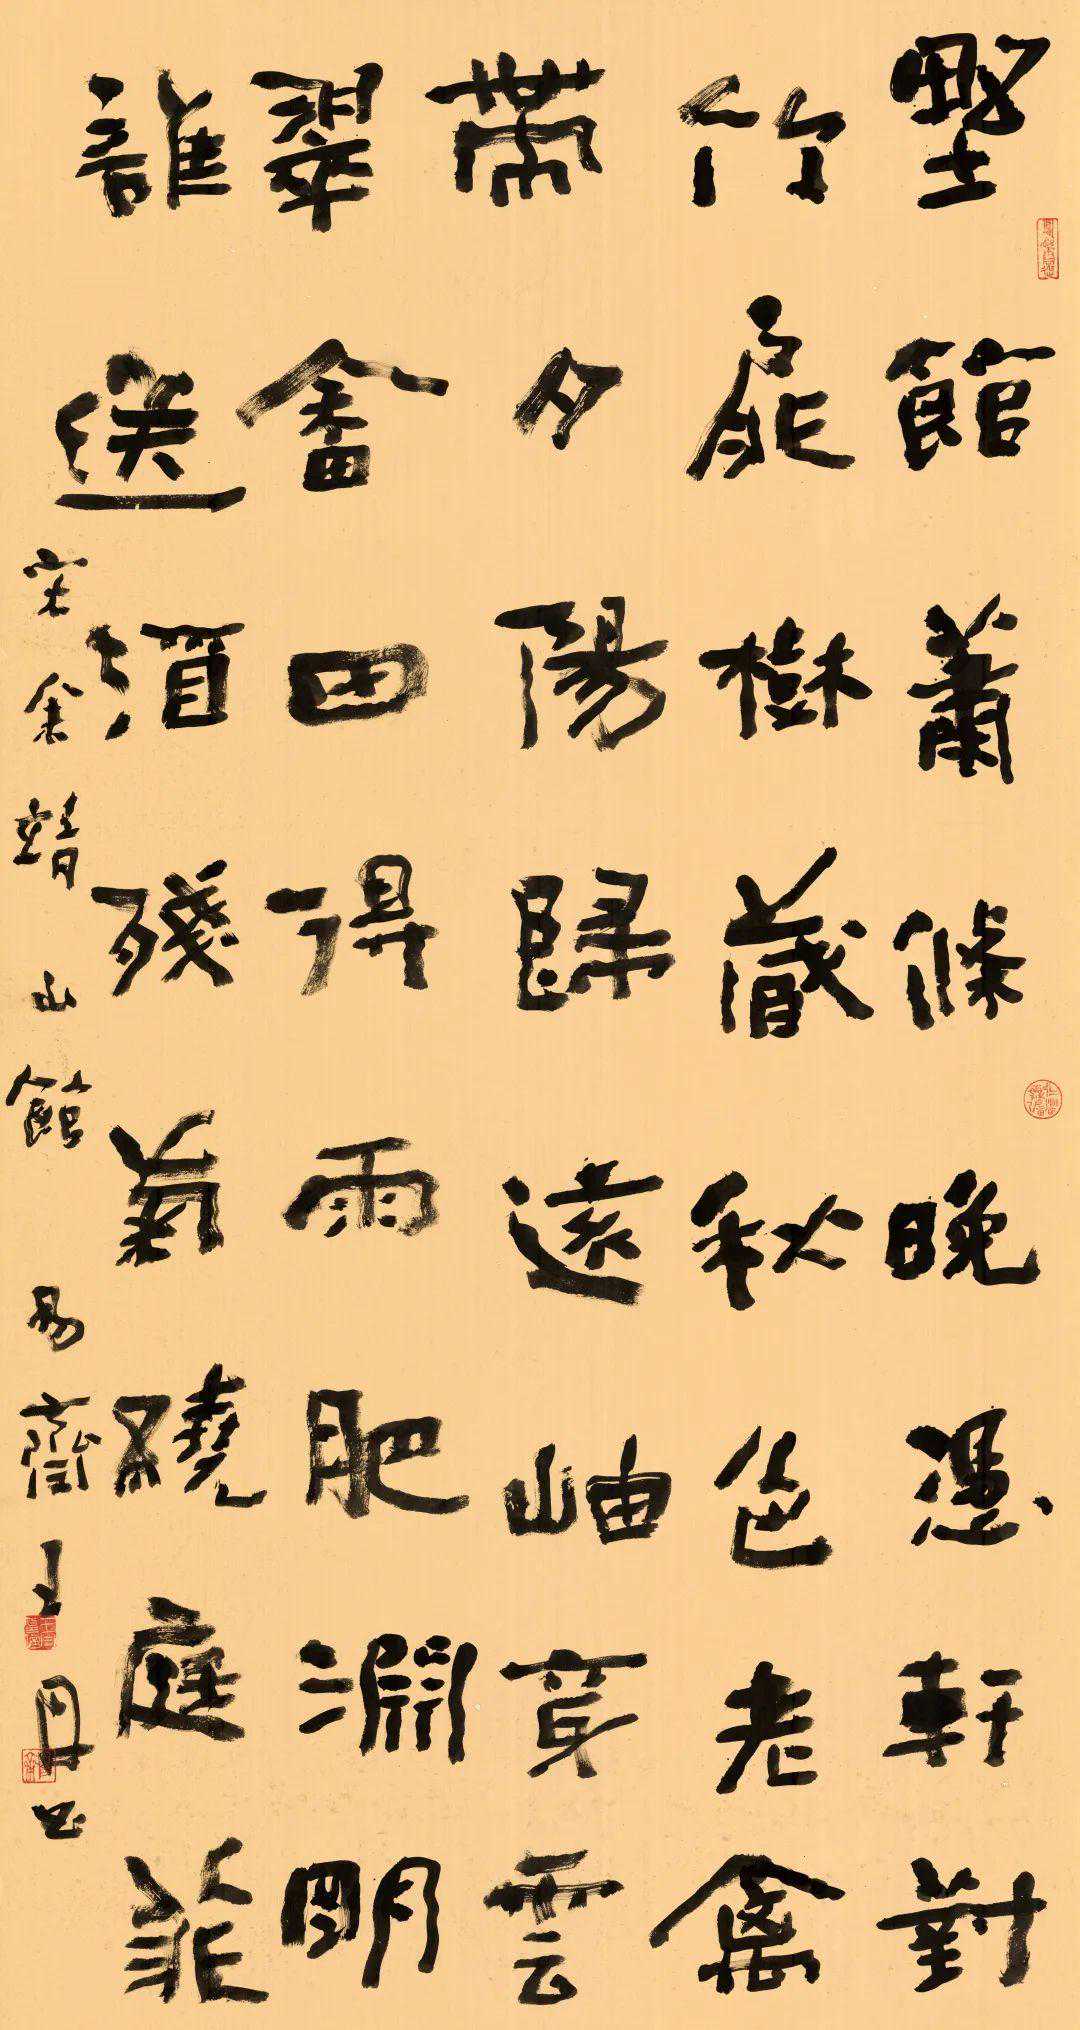 野館蕭條晚憑軒對
竹扉樹藏秋色老禽
帶夕陽歸遠岫穿雲
翠畬田得雨肥淵明
誰送酒殘菊繞庭菲
宋余靖山館易齋王丹書